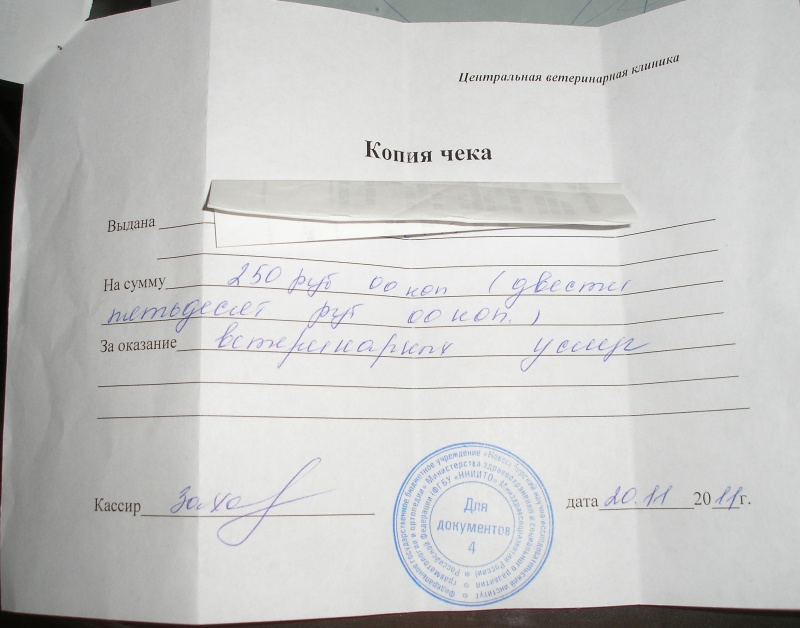 Центральная ветеринарная клиника
Копия чека
Выдана
На сумму 250 руб 00 коп (двести
пятьдесят руб 00 коп.)
За оказание ветеринарных услуг
Кассир
Для
документов
4
дата 20.11 2011г.
Федеральное государственное бюджетное учреждение «Новосибирский научно-исследовательский институт
травматологии и ортопедии» Министерства здравоохранения и социального развития
Российской Федерации (ФГБУ «ННИИТО» Минздравсоцразвития России)